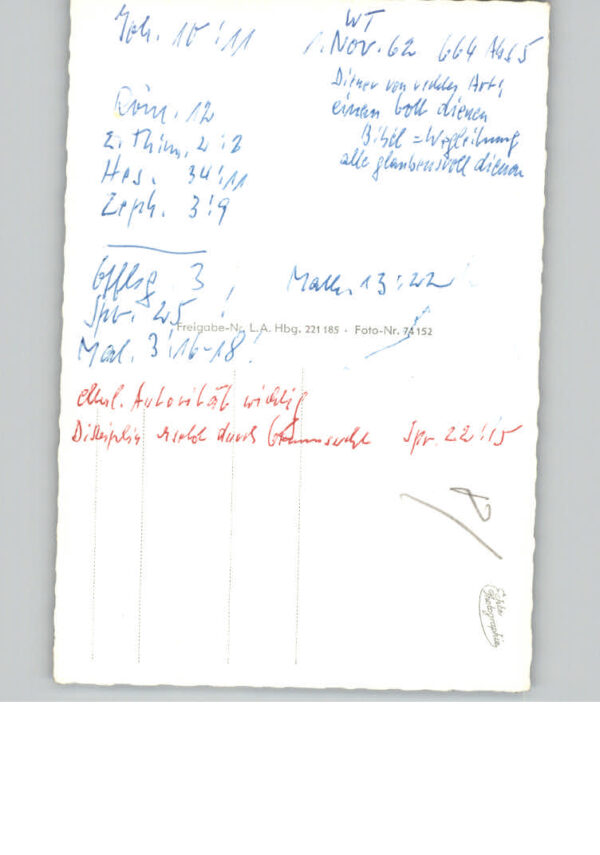 Joh. 10:11
WT
1. Nov. 62 664 Abs 5
Diener von rechter Art;
einem Gott dienen
Bibel = Wegleitung
alle glaubensvoll dienen
Röm. 12
2. Thim. 2:2
Hes. 34:11
Zeph. 3:9
Offbg. 3, Math. 13:22
Spr. 25!
Freigabe-Nr. L.A. Hbg. 221185 · Foto-Nr. 74152
Mal. 3:16-18!
elterl. Autorität wichtig
Disziplin durch Spr. 22:15
Echte
Photographie